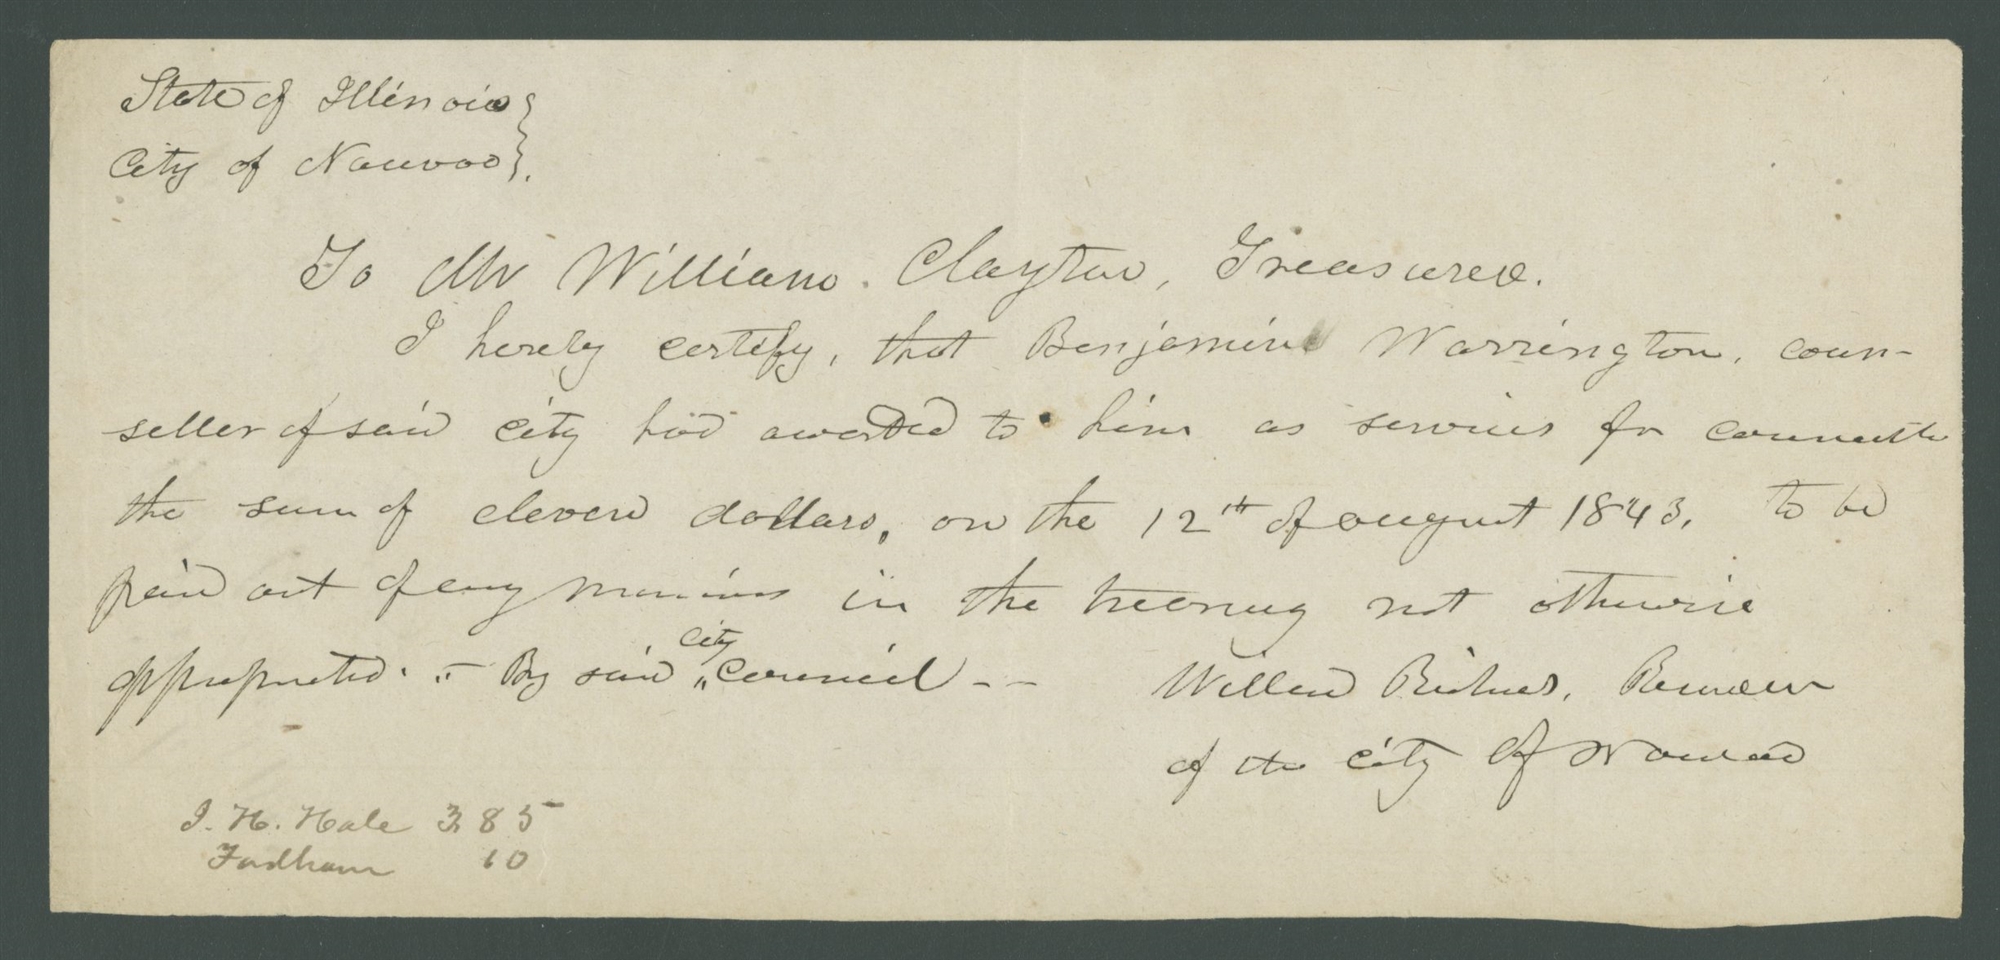 State of Illinois }
City of Nauvoo }.
To Mr William. Clayton, Treasurer.
I hereby certify, that Benjamin Warrington, coun-
seller of said city had awarded to him as services for
the sum of eleven dollars, on the 12th of august 1843, to be
paid out of any monies in the treasury not otherwise
appropriated. - By said City Council - -
Willard Richards, Recorder
of the city of Nauvoo
J. H. Hale 3,85
Fordham 10